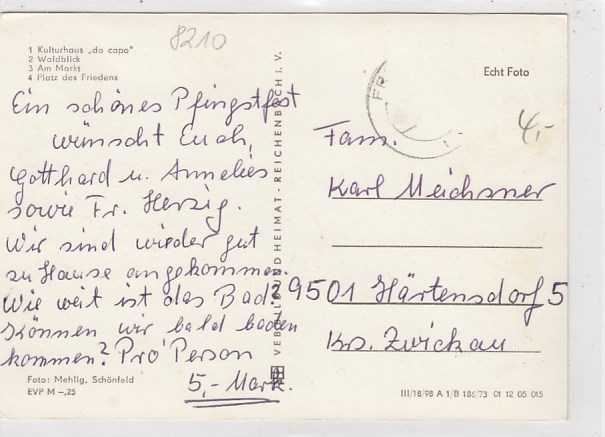 8210
1 Kulturhaus „da capo"
2 Waldblick
3 Am Markt
4 Platz des Friedens
Ein schönes Pfingstfest
wünscht Euch,
Gotthard u. Annelies
sowie Fr. Herzig.
Wir sind wieder gut
zu Hause angekommen.
Wie weit ist das Bad?
Können wir bald baden
kommen? Pro Person
5,- Mark.
Foto: Mehlig, Schönfeld
EVP M –,25
VEB BILD UND HEIMAT · REICHENBACH i. V.
Echt Foto
FR
4,-
Fam.
Karl Meichsner
9501 Härtensdorf 5
Krs. Zwickau
III/18/98 A 1/B 186/73 01 12 05 015